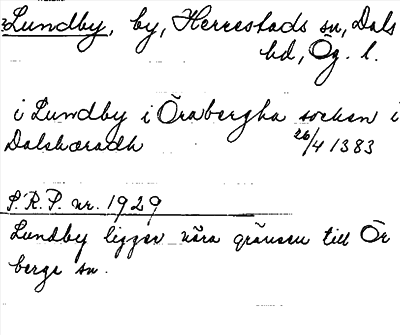 Lundby, by, Herrestads sn, Dals
hd, Ög. l.
i Lundby i Örabergha socken i
Dalshæradh 26/4 1383
S.R.P. nr. 1929
Lundby ligger nära gränsen till Ör
berga sn.